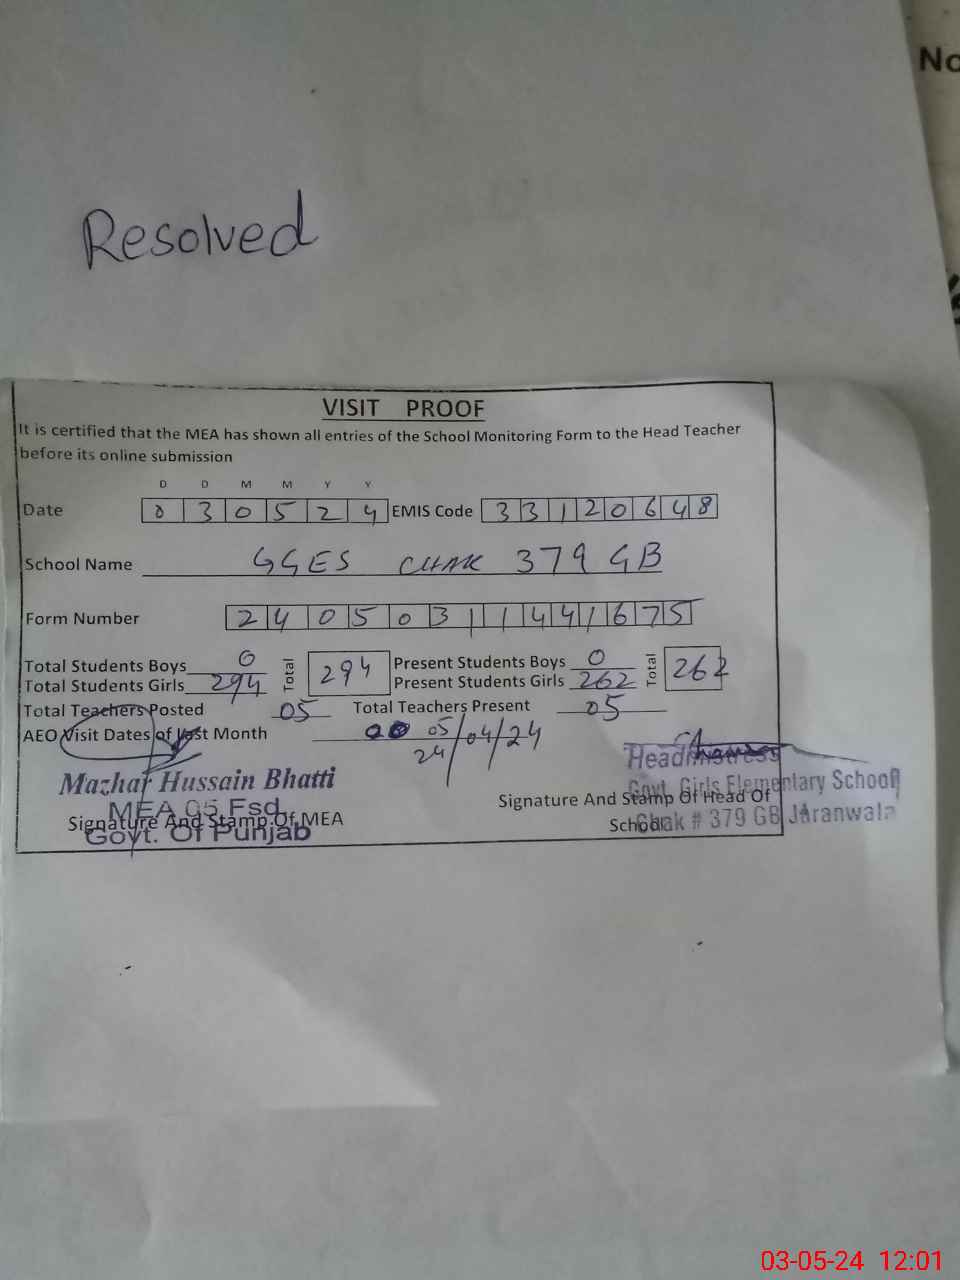 No
Resolved
VISIT PROOF
It is certified that the MEA has shown all entries of the School Monitoring Form to the Head Teacher
before its online submission
D D M M Y Y
Date 0 3 0 5 2 4 EMIS Code 3 3 1 2 0 6 4 8
School Name GGES CHAK 379 GB
Form Number 2 4 0 5 0 3 1 1 4 4 1 6 7 5
Total Students Boys 0 Total 294 Present Students Boys 0 Total 262
Total Students Girls 294 Present Students Girls 262
Total Teachers Posted 05 Total Teachers Present 05
AEO Visit Dates of last Month 05
24/04/24
Mazhar Hussain Bhatti
MEA 05 Fsd
Signature And Stamp Of MEA
Govt. Of Punjab
Headmistress
Govt. Girls Elementary School
Signature And Stamp Of Head Of
School
Chak # 379 GB Jaranwala
03-05-24 12:01